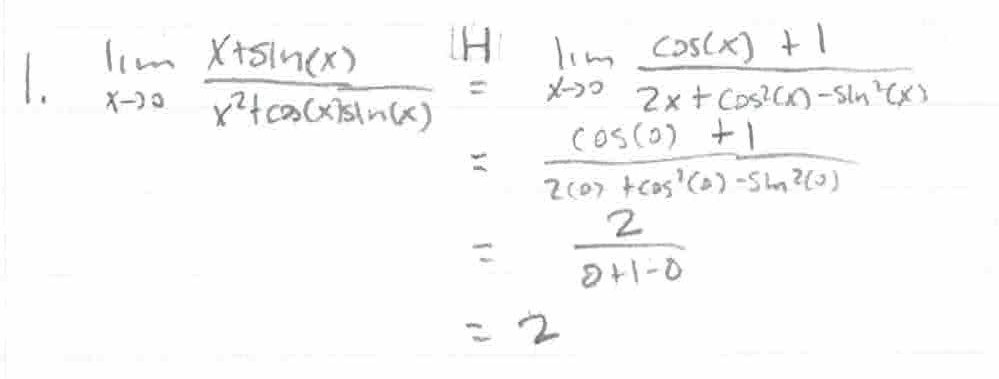 1. lim x→0 (x+sin(x))/(x²+cos(x)sin(x)) H= lim x→0 (cos(x) +1)/(2x+cos²(x)-sin²(x))
= (cos(0) +1)/(2(0) +cos²(0)-sin²(0))
= 2/(0+1-0)
= 2